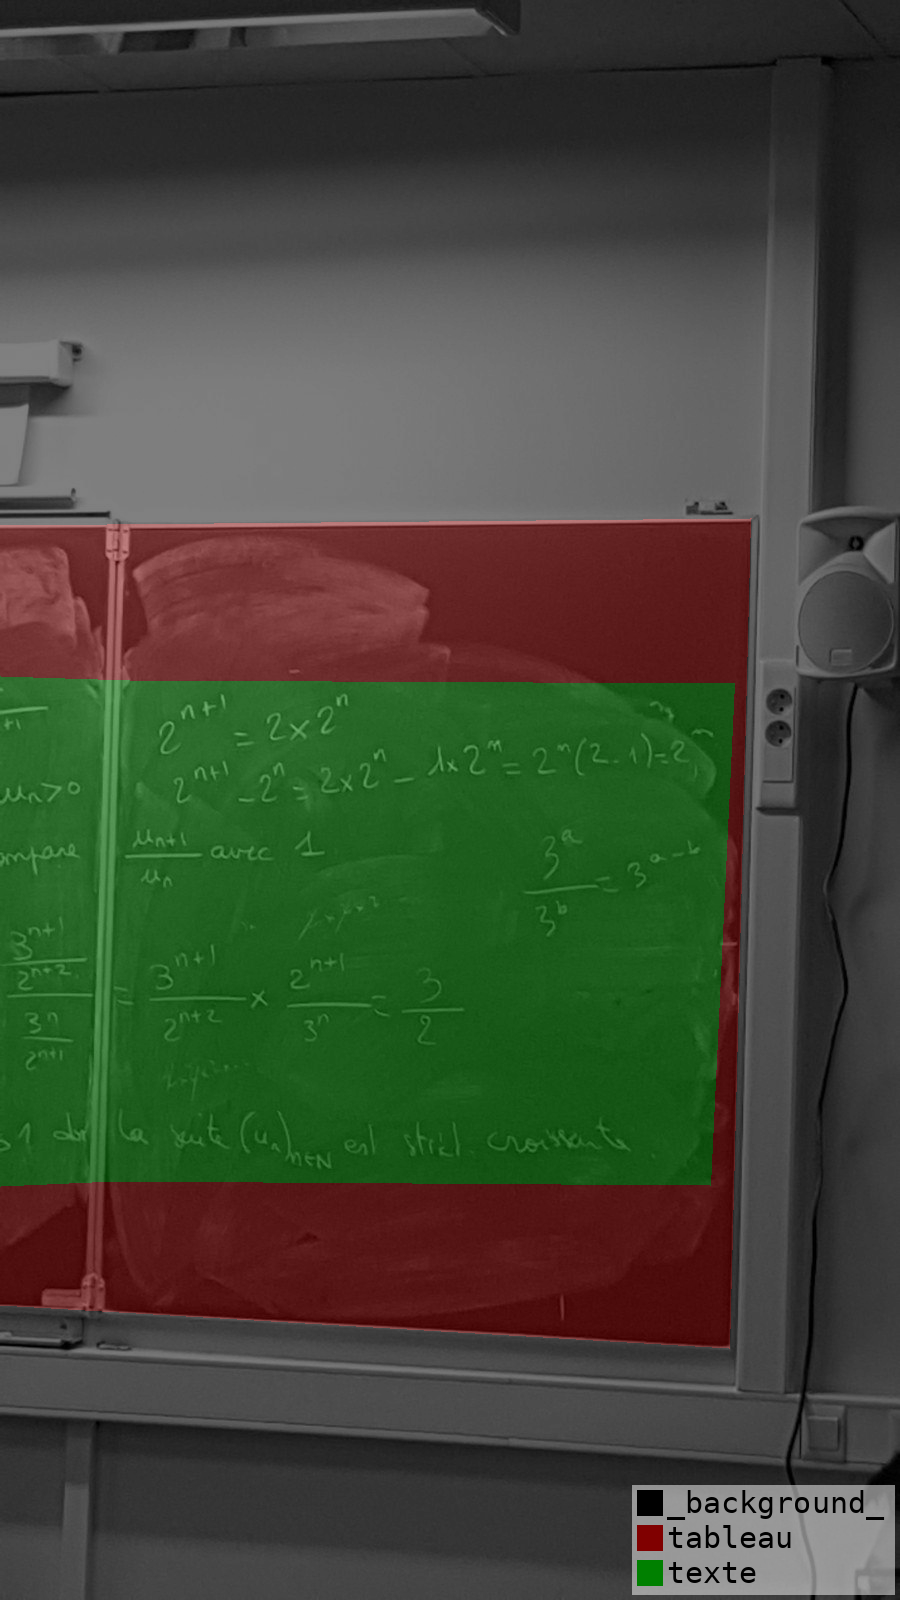 2^{n+1} = 2 × 2^n
2^{n+1} - 2^n = 2 × 2^n - 1 × 2^n = 2^n (2 - 1) = 2^n
+1
u_n > 0
ompare u_{n+1}/u_n avec 1
3^a/3^b = 3^{a-b}
(3^{n+1}/2^{n+2})/(3^n/2^{n+1}) = 3^{n+1}/2^{n+2} × 2^{n+1}/3^n = 3/2
1 la suite (u_n)_{n∈N} est strict. croissante.
_background_
tableau
texte